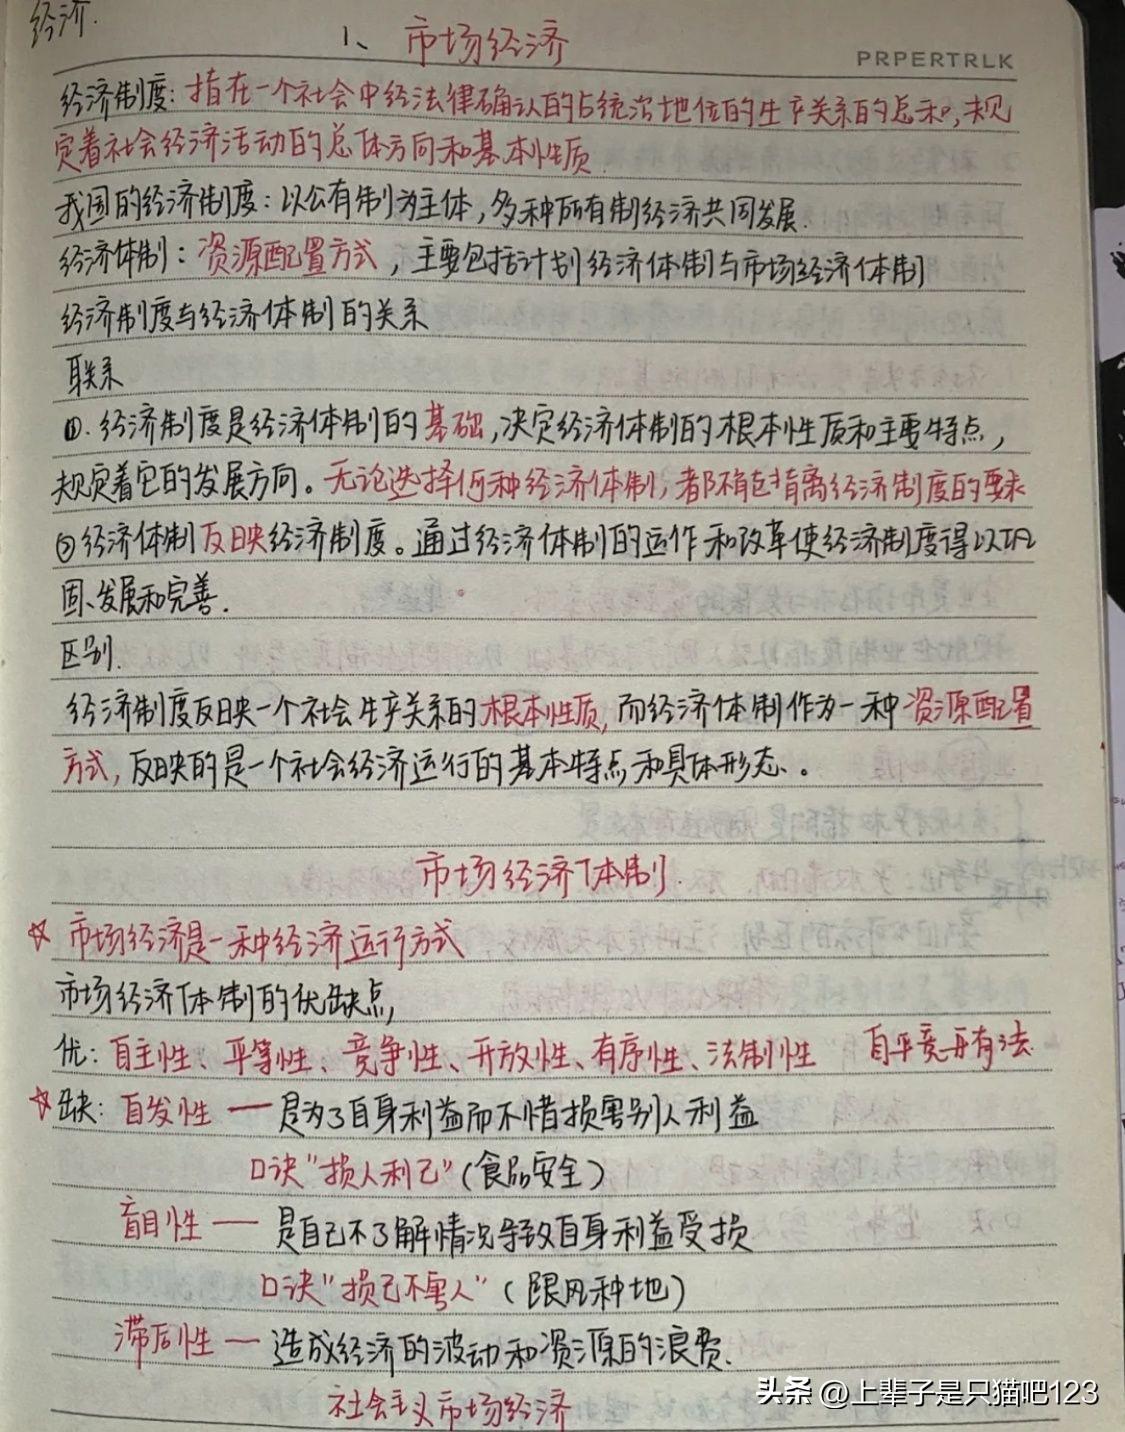 经济.
1、市场经济
PRPERTRLK
经济制度:指在一个社会中经法律确认的占统治地位的生产关系的总和,规
定着社会经济活动的总体方向和基本性质.
我国的经济制度:以公有制为主体,多种所有制经济共同发展.
经济体制:资源配置方式,主要包括计划经济体制与市场经济体制
经济制度与经济体制的关系
联系
①.经济制度是经济体制的基础,决定经济体制的根本性质和主要特点,
规定着它的发展方向。无论选择何种经济体制,都不能背离经济制度的要求
②经济体制反映经济制度。通过经济体制的运作和改革使经济制度得以巩
固、发展和完善.
区别.
经济制度反映一个社会生产关系的根本性质,而经济体制作为一种资源配置
方式,反映的是一个社会经济运行的基本特点和具体形态。
市场经济体制.
☆市场经济是一种经济运行方式
市场经济体制的优缺点,
优:自主性、平等性、竞争性、开放性、有序性、法制性 自平竞开有法.
☆缺:自发性—是为了自身利益而不惜损害别人利益
口诀"损人利己"(食品安全)
盲目性—是自己不了解情况导致自身利益受损
口诀"损己不害人"(跟风种地)
滞后性—造成经济的波动和资源的浪费.
社会主义市场经济
头条 @上辈子是只猫吧123